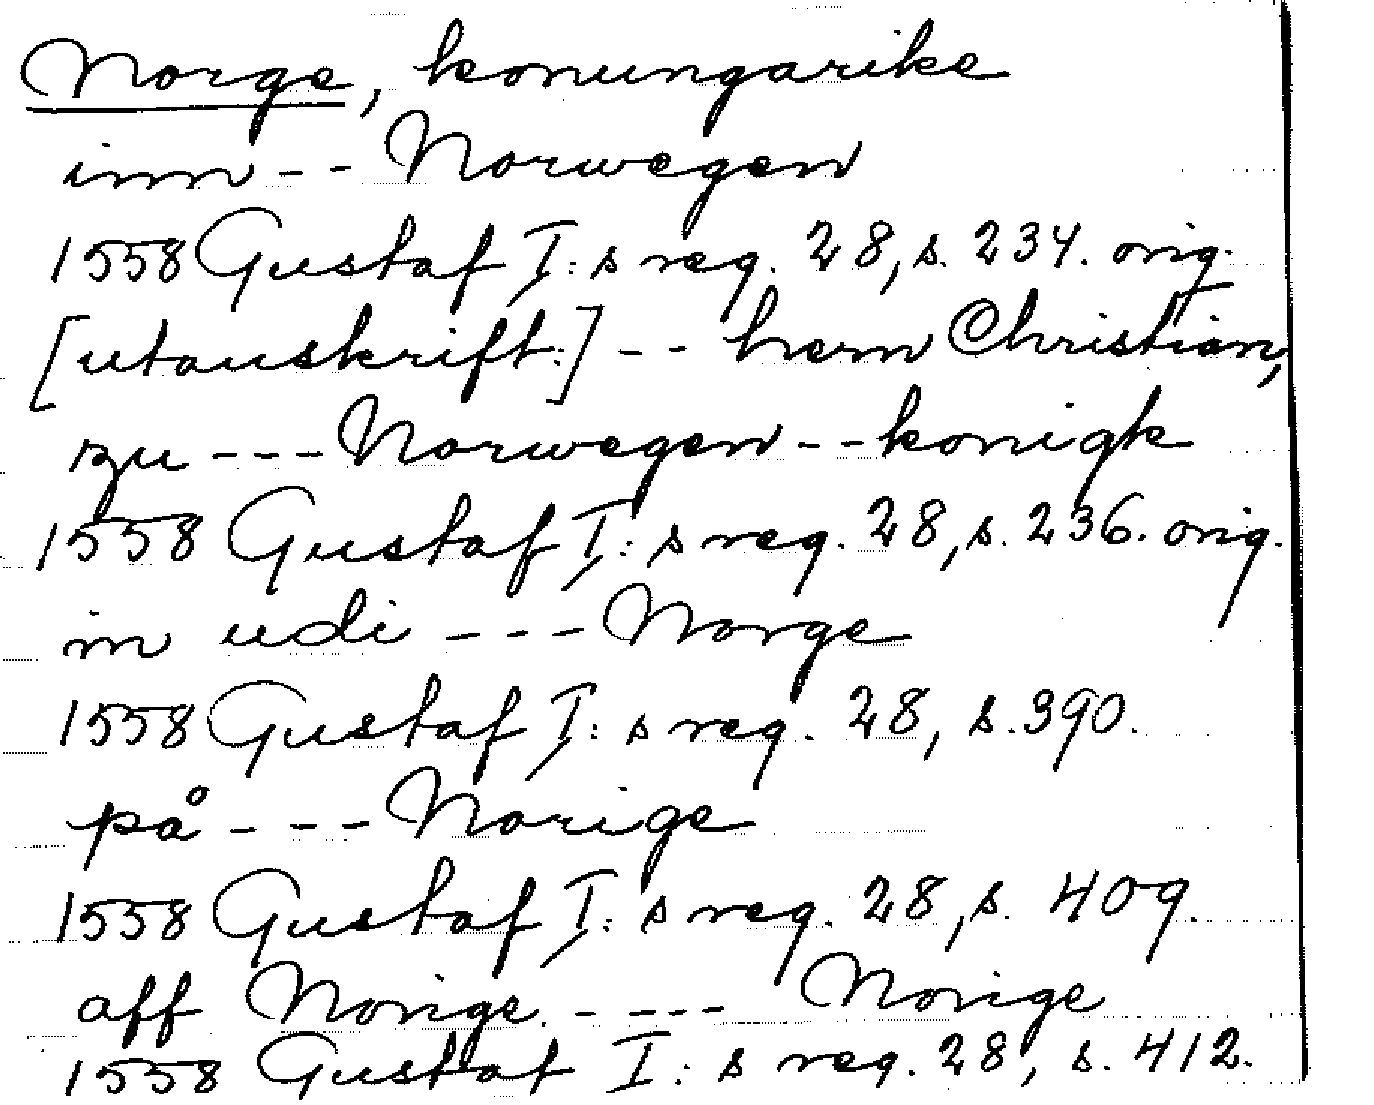 Norge, konungarike
inn -- Norwegen
1558 Gustaf I:s reg. 28, s. 234. orig.
[utanskrift:] -- hern Christian,
zu --- Norwegen -- konigk
1558 Gustaf I:s reg. 28, s. 236. orig.
in udi --- Norge
1558 Gustaf I:s reg. 28, s. 390.
på --- Norige
1558 Gustaf I:s reg. 28, s. 409.
aff Norige. ---- Norige
1558 Gustaf I:s reg. 28, s. 412.